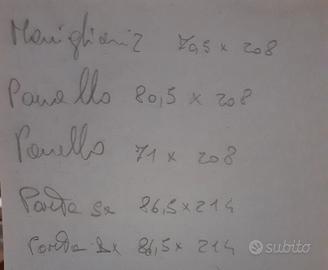 Maniglioni 2 70,5 x 208
Panello 80,5 x 208
Panello 71 x 208
Porta sx 86,5 x 214
Porta dx 86,5 x 214
subito